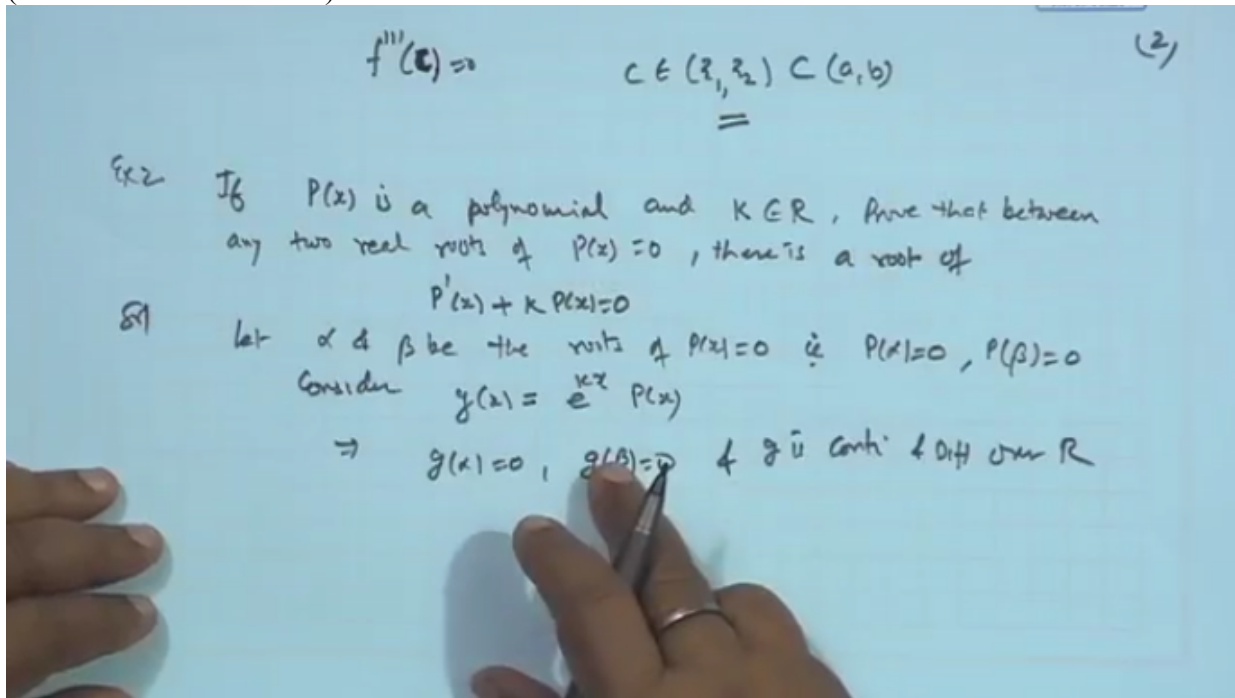 f'''(c)=0 C ∈ (ξ₁, ξ₂) ⊂ (a, b) (2)
Ex2 If P(x) is a polynomial and K ∈ R, Prove that between
any two real roots of P(x)=0, there is a root of
P'(x) + K P(x)=0
Sol let α & β be the roots of P(x)=0 ie P(α)=0, P(β)=0
Consider g(x) = e^{kx} P(x)
⇒ g(α)=0, g(β)=0 & g is conti & Diff over R